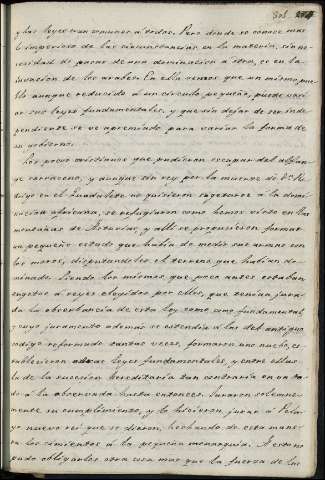 y las leyes eran comunes á todos. Pero donde se conoce mas
lo imperioso de las circunstancias en la materia, sin ne-
cesidad de pasar de una dominacion á otra, es en la
invacion de los arabes. En ella vemos que un mismo pue-
blo aunque reducido á un circulo pequeño, puede vari-
ar sus leyes fundamentales, y que sin dejar de ser inde-
pendiente se ve apremiado para variar la forma de
su gobierno.
Los pocos cristianos que pudieron escapar del alfan-
ge sarraceno, y aunque sin rey por la muerte de Dn. Ro-
drigo en el Guadalete no quisieron sugetarse á la domi-
nacion africana, se refugiaron como hemos visto en las
montañas de Asturias, y alli se propusieron formar
un pequeño estado que habia de medir sus armas con
los moros, disputandoles el terreno que habian do-
minado. Siendo los mismos que poco antes estaban
sugetos á reyes elegidos por ellos, que tenian jura-
da la observancia de esta ley como fundamental,
y cuyo juramento ademas se estendia á las del antiguo
codigo reformado tantas veces, formaron uno nuebo, es-
tablecieron leyes fundamentales, y entre ellas
la de la sucesion hereditaria tan contraria en un to-
do á la observada hasta entonces. Juraron solemne-
mente su cumplimiento, y lo hicieron jurar á Pela-
yo nuevo rei que se dieron, hechando de esta mane-
ra los cimientos á la pequeña monarquia. A esto no
pudo obligarles otra cosa mas que la fuerza de las